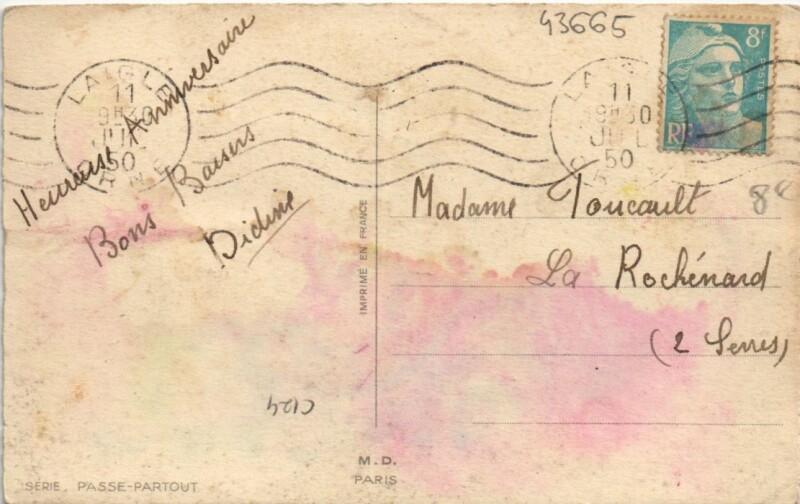 43665
8f
POSTES
RF
LAIGLE
11
9H30
JUIL
50
ORNE
LAIGLE
11
9H30
JUIL
50
ORNE
Heureuse Anniversaire
Bons Baisers
Didine
Madame Toucault
La Rochénard
(2 Sevres)
IMPRIMÉ EN FRANCE
C124
M.D.
PARIS
SÉRIE PASSE-PARTOUT